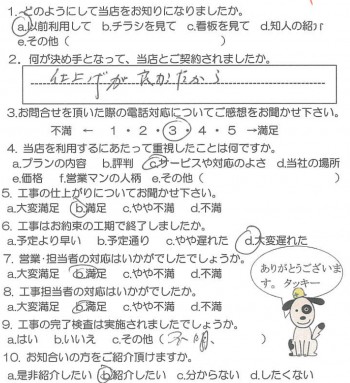 1. どのようにして当店をお知りになりましたか。
a.以前利用して b.チラシを見て c.看板を見て d.知人の紹介
e.その他(
2. 何が決め手となって、当店とご契約されましたか。
仕上げが良かったから
3.お問合せを頂いた際の電話対応についてご感想をお聞かせ下さい。
不満 ← 1・2・3・4・5 →満足
4. 当店を利用するにあたって重視したことは何ですか。
a.プランの内容 b.評判 c.サービスや対応のよさ d.当社の場所
e.価格 f.営業マンの人柄 e.その他( )
5. 工事の仕上がりについてお聞かせ下さい。
a.大変満足 b.満足 c.やや不満 d.不満
6. 工事はお約束の工期で終了しましたか。
a.予定より早い b.予定通り c.やや遅れた d.大変遅れた
7. 営業・担当者の対応はいかがでしたでしょうか。
a.大変満足 b.満足 c.やや不満 d.不満
8. 工事担当者の対応はいかがでしたか。
a.大変満足 b.満足 c.やや不満 d.不満
9. 工事の完了検査は実施されましたでしょうか。
a.はい b.いいえ c.その他(不明、 )
10. お知合いの方をご紹介頂けますか。
a.是非紹介したい b.紹介したい c.分からない d.したくない
ありがとうございま
す。 タッキー